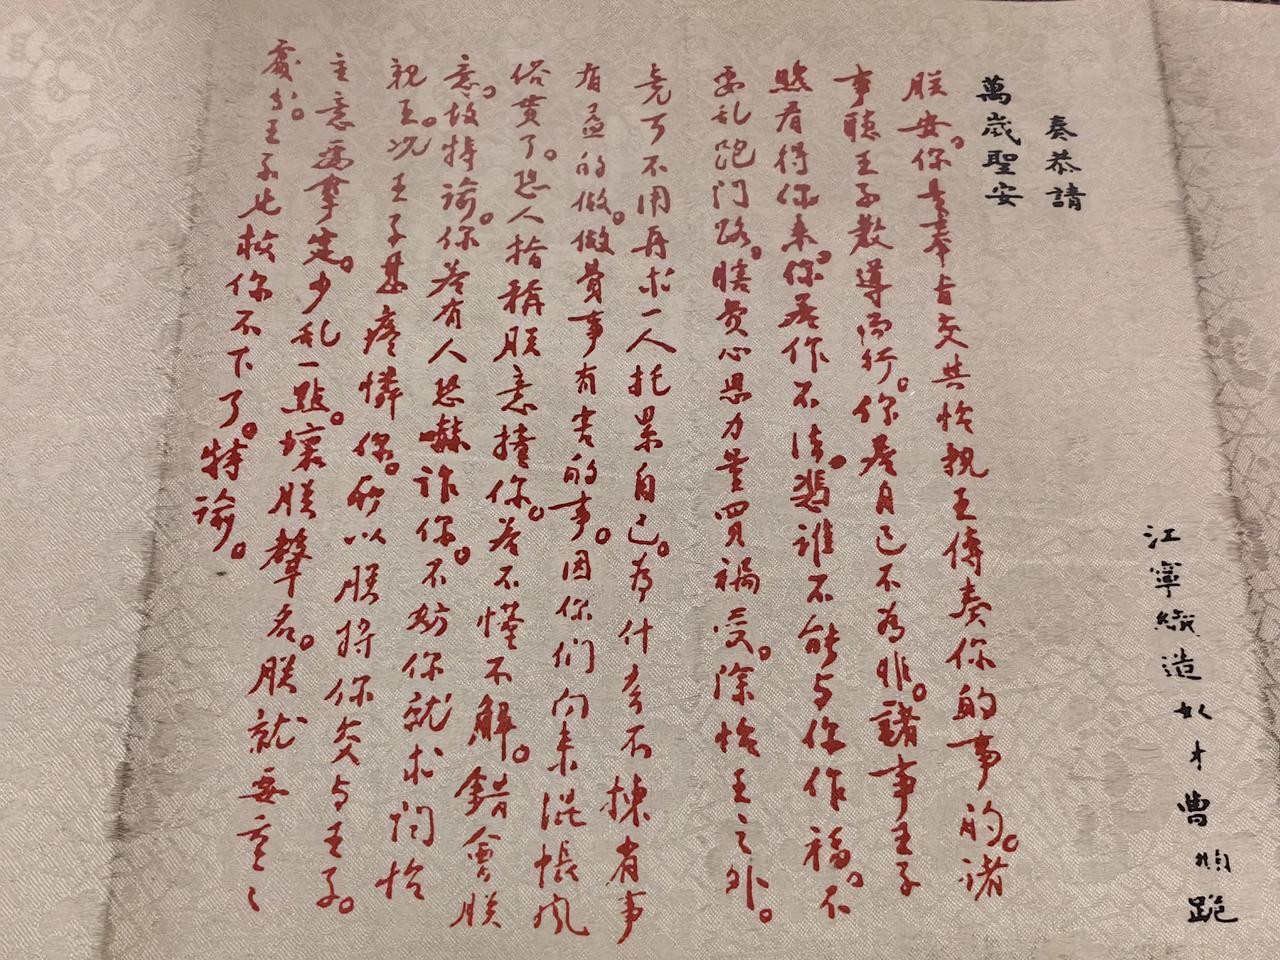 江寧織造奴才曹頫跪
奏恭請
萬歲聖安
朕安。你是奉旨交與怡親王傳奏你的事的。諸
事聽王子教導而行。你若自己不為非。諸事王子
照看得你來。你若作不法。憑誰不能與你作福。不
要乱跑門路。瞎費心思力量買禍受。除怡王之外。
竟可不用再求一人托累自己。為什么不揀省事
有益的做。做費事有害的事。因你们向来混帳風
俗貫了。恐人指稱朕意撞你。若不懂不解。錯會朕
意。故特諭。你若有人恐嚇詐你。不妨你就求问怡
親王。况王子甚疼憐你。所以朕将你交与王子。
主意要拿定。少乱一點。壞朕聲名。朕就要重々
處分。王子也救你不下了。特諭。